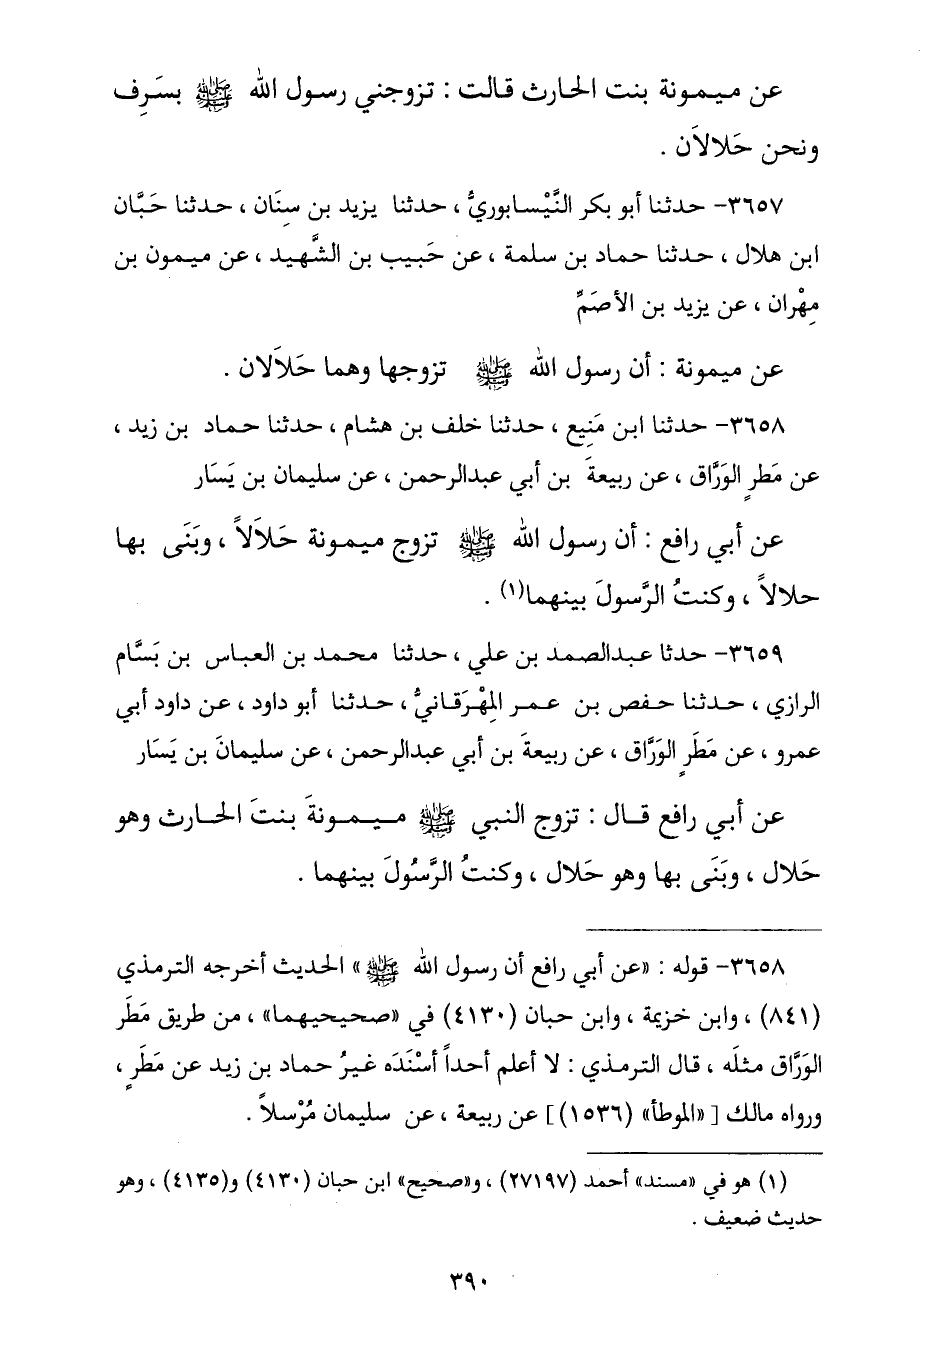 عن ميمونة بنت الحارث قالت : تزوجني رسول الله ﷺ بسَرِف
ونحن حَلالاَن .
٣٦٥٧- حدثنا أبو بكر النَّيْسابوريُّ ، حدثنا يزيد بن سِنَان ، حدثنا حَبَّان
ابن هلال ، حدثنا حماد بن سلمة ، عن حَبيب بن الشَّهيد ، عن ميمون بن
مِهْران ، عن يزيد بن الأصَمِّ
عن ميمونة : أن رسول الله ﷺ تزوجها وهما حَلاَلان .
٣٦٥٨- حدثنا ابن مَنِيع ، حدثنا خلف بن هشام ، حدثنا حماد بن زيد ،
عن مَطرٍ الوَرَّاق ، عن ربيعةَ بن أبي عبدالرحمن ، عن سليمان بن يَسَار
عن أبي رافع : أن رسول الله ﷺ تزوج ميمونة حَلاَلاً ، وبَنَى بها
حلالاً ، وكنتُ الرَّسولَ بينهما(١) .
٣٦٥٩- حدثا عبدالصمد بن علي ، حدثنا محمد بن العباس بن بَسَّام
الرازي ، حدثنا حفص بن عمر المِهْرَقانيُّ ، حدثنا أبو داود ، عن داود أبي
عمرو ، عن مَطَرٍ الوَرَّاق ، عن ربيعةَ بن أبي عبدالرحمن ، عن سليمانَ بن يَسَار
عن أبي رافع قال : تزوج النبي ﷺ ميمونةَ بنتَ الحارث وهو
حَلال ، وبَنَى بها وهو حَلال ، وكنتُ الرَّسُولَ بينهما .
٣٦٥٨- قوله : «عن أبي رافع أن رسول الله ﷺ» الحديث أخرجه الترمذي
(٨٤١) ، وابن خزيمة ، وابن حبان (٤١٣٠) في «صحيحيهما» ، من طريق مَطَر
الوَرَّاق مثلَه ، قال الترمذي : لا أعلم أحداً أسْنَدَه غيرُ حماد بن زيد عن مَطَرٍ ،
ورواه مالك [«الموطأ» (١٥٣٦)] عن ربيعة ، عن سليمان مُرْسلاً .
(١) هو في «مسند» أحمد (٢٧١٩٧) ، و«صحيح» ابن حبان (٤١٣٠) و(٤١٣٥) ، وهو
حديث ضعيف .
٣٩٠